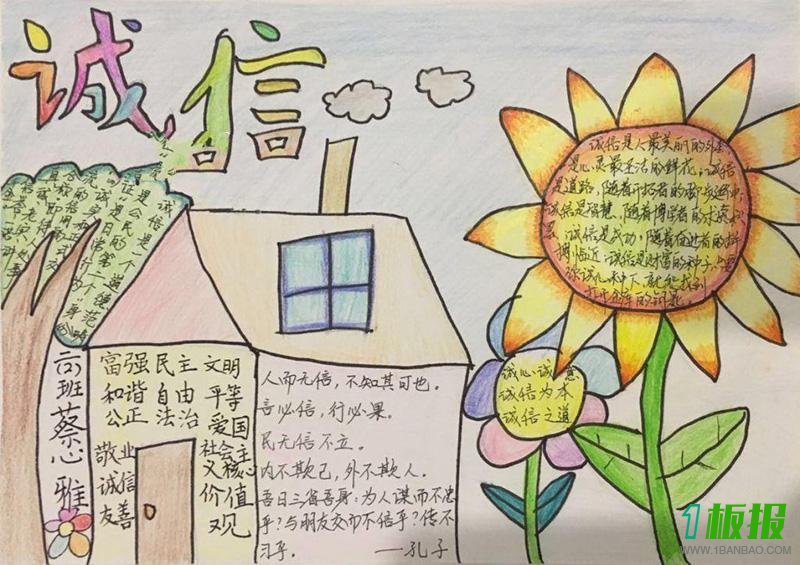 诚信
诚信是一个道德范
富强 民主 文明
和谐 自由 平等
公正 法治 爱国
敬业
诚信
友善
社会主
义核心
价值
观
班蔡心雅
人而无信,不知其可也。
言必信,行必果。
民无信不立。
内不欺己,外不欺人。
吾日三省吾身:为人谋而不忠
乎?与朋友交而不信乎?传不
习乎。 ——孔子
诚信是人最美丽的外套
是心灵最圣洁的鲜花。诚信
是道路,随着开拓者的脚步延伸,
诚信是智慧,随着博学者的求索积
累,诚信是成功,随着奋进者的拼
搏临近,诚信是财富的种子,只要
你诚心种下,就能找到
打开金库的钥匙。
诚心诚意
诚信为本
诚信之道
1板报
WWW.1BANBAO.COM